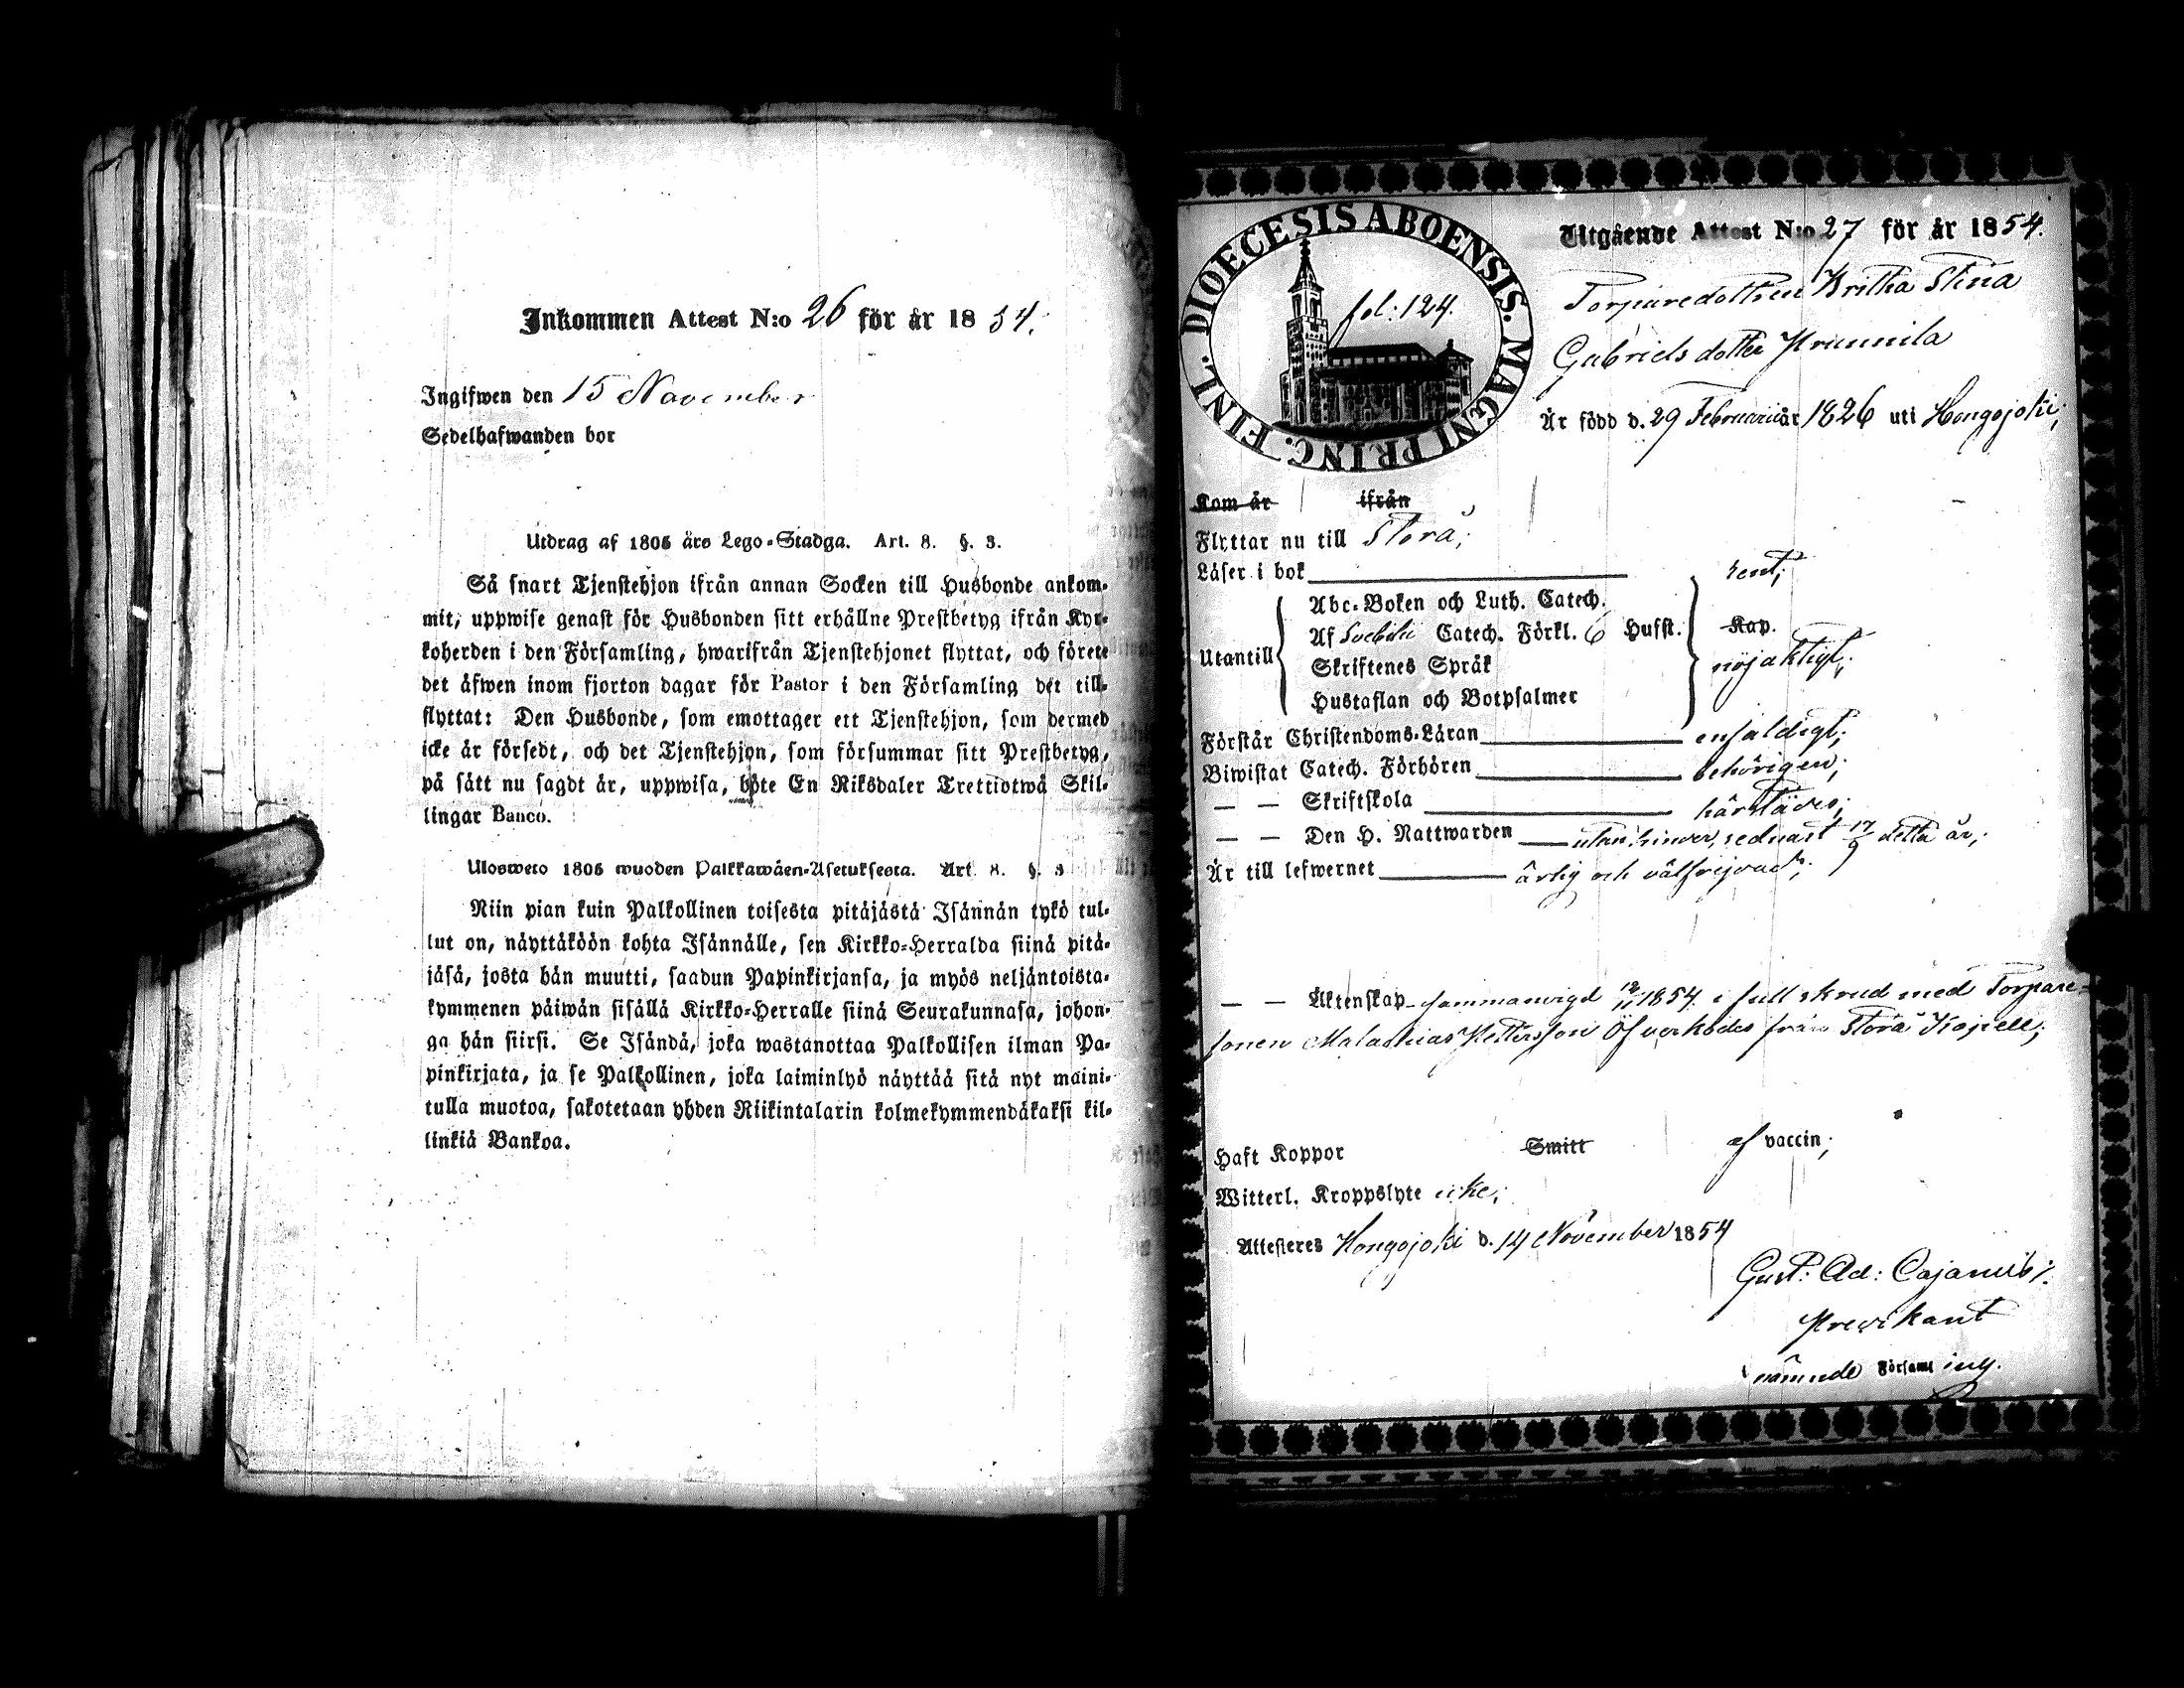 Inkommen Attest N:o 26 för år 1854.
Ingifwen den 15 November
Sedelhafwanden bor
Utdrag af 1805 års Lego-Stadga. Art. 8. §. 3.
Så snart Tjenstehjon ifrån annan Socken till Husbonde ankom-
mit, uppwise genast för Husbonden sitt erhållne Prestbetyg ifrån Kyr-
koherden i den Församling, hwarifrån Tjenstehjonet flyttat, och förete
det äfwen inom fjorton dagar för Pastor i den Församling det till-
flyttat: Den Husbonde, som emottager ett Tjenstehjon, som dermed
icke är försedt, och det Tjenstehjon, som försummar sitt Prestbetyg,
på sätt nu sagdt är, uppwisa, böte En Riksdaler Trettiotwå Skil-
lingar Banco.
Ulosweto 1805 wuoden Palkkawäen-Asetuksesta. Art. 8. §. 3
Niin pian kuin Palkollinen toisesta pitäjästä Isännän tykö tul-
lut on, näyttäköön kohta Isännälle, sen Kirkko-Herralda siinä pitä-
jäsä, josta hän muutti, saadun Papinkirjansa, ja myös neljäntoista-
kymmenen päiwän sisällä Kirkko-Herralle siinä Seurakunnasa, johon-
ga hän siirsi. Se Isändä, joka wastanottaa Palkollisen ilman Pa-
pinkirjata, ja se Palkollinen, joka laiminlyö näyttää sitä nyt maini-
tulla muotoa, sakotetaan yhden Riikintalarin kolmekymmendäkaksi kil-
linkiä Bankoa.
DIOECESIS ABOENSIS. MAGNI PRINC. FINL.
fol: 124.
Utgående Attest N:o 27 för år 1854.
Torparedottren Britha Stina
Gabrielsdotter
Är född d. 29 Februarii år 1826 uti Hongojoki;
Kom år ifrån
Flyttar nu till Storå;
Läser i bok rent;
Abc-Boken och Luth. Catech.
Af Svebelii Catech. Förkl. 6 Hufst. Kap.
Utantill Skriftenes Språk nöjaktigt;
Hustaflan och Botpsalmer
Förstår Christendoms-Läran enfaldigt;
Biwistat Catech. Förhören behörigen;
— — Skriftskola härstädes;
— — Den H. Nattwarden utan hinder, sednast 17/9 detta år;
Är till lefwernet ärlig och välfrejdad;
— — Äktenskap sammanvigd 12/11 1854 i full skrud med Torpare-
sonen Malachias Pettersson Öfverkodes från Storå Kapell;
Haft Koppor Smitt af vaccin;
Witterl. Kroppslyte icke;
Attesteres Hongojoki d. 14 November 1854
Gust: Ad: Cajanus /.
Predikant
nämnde Församling.